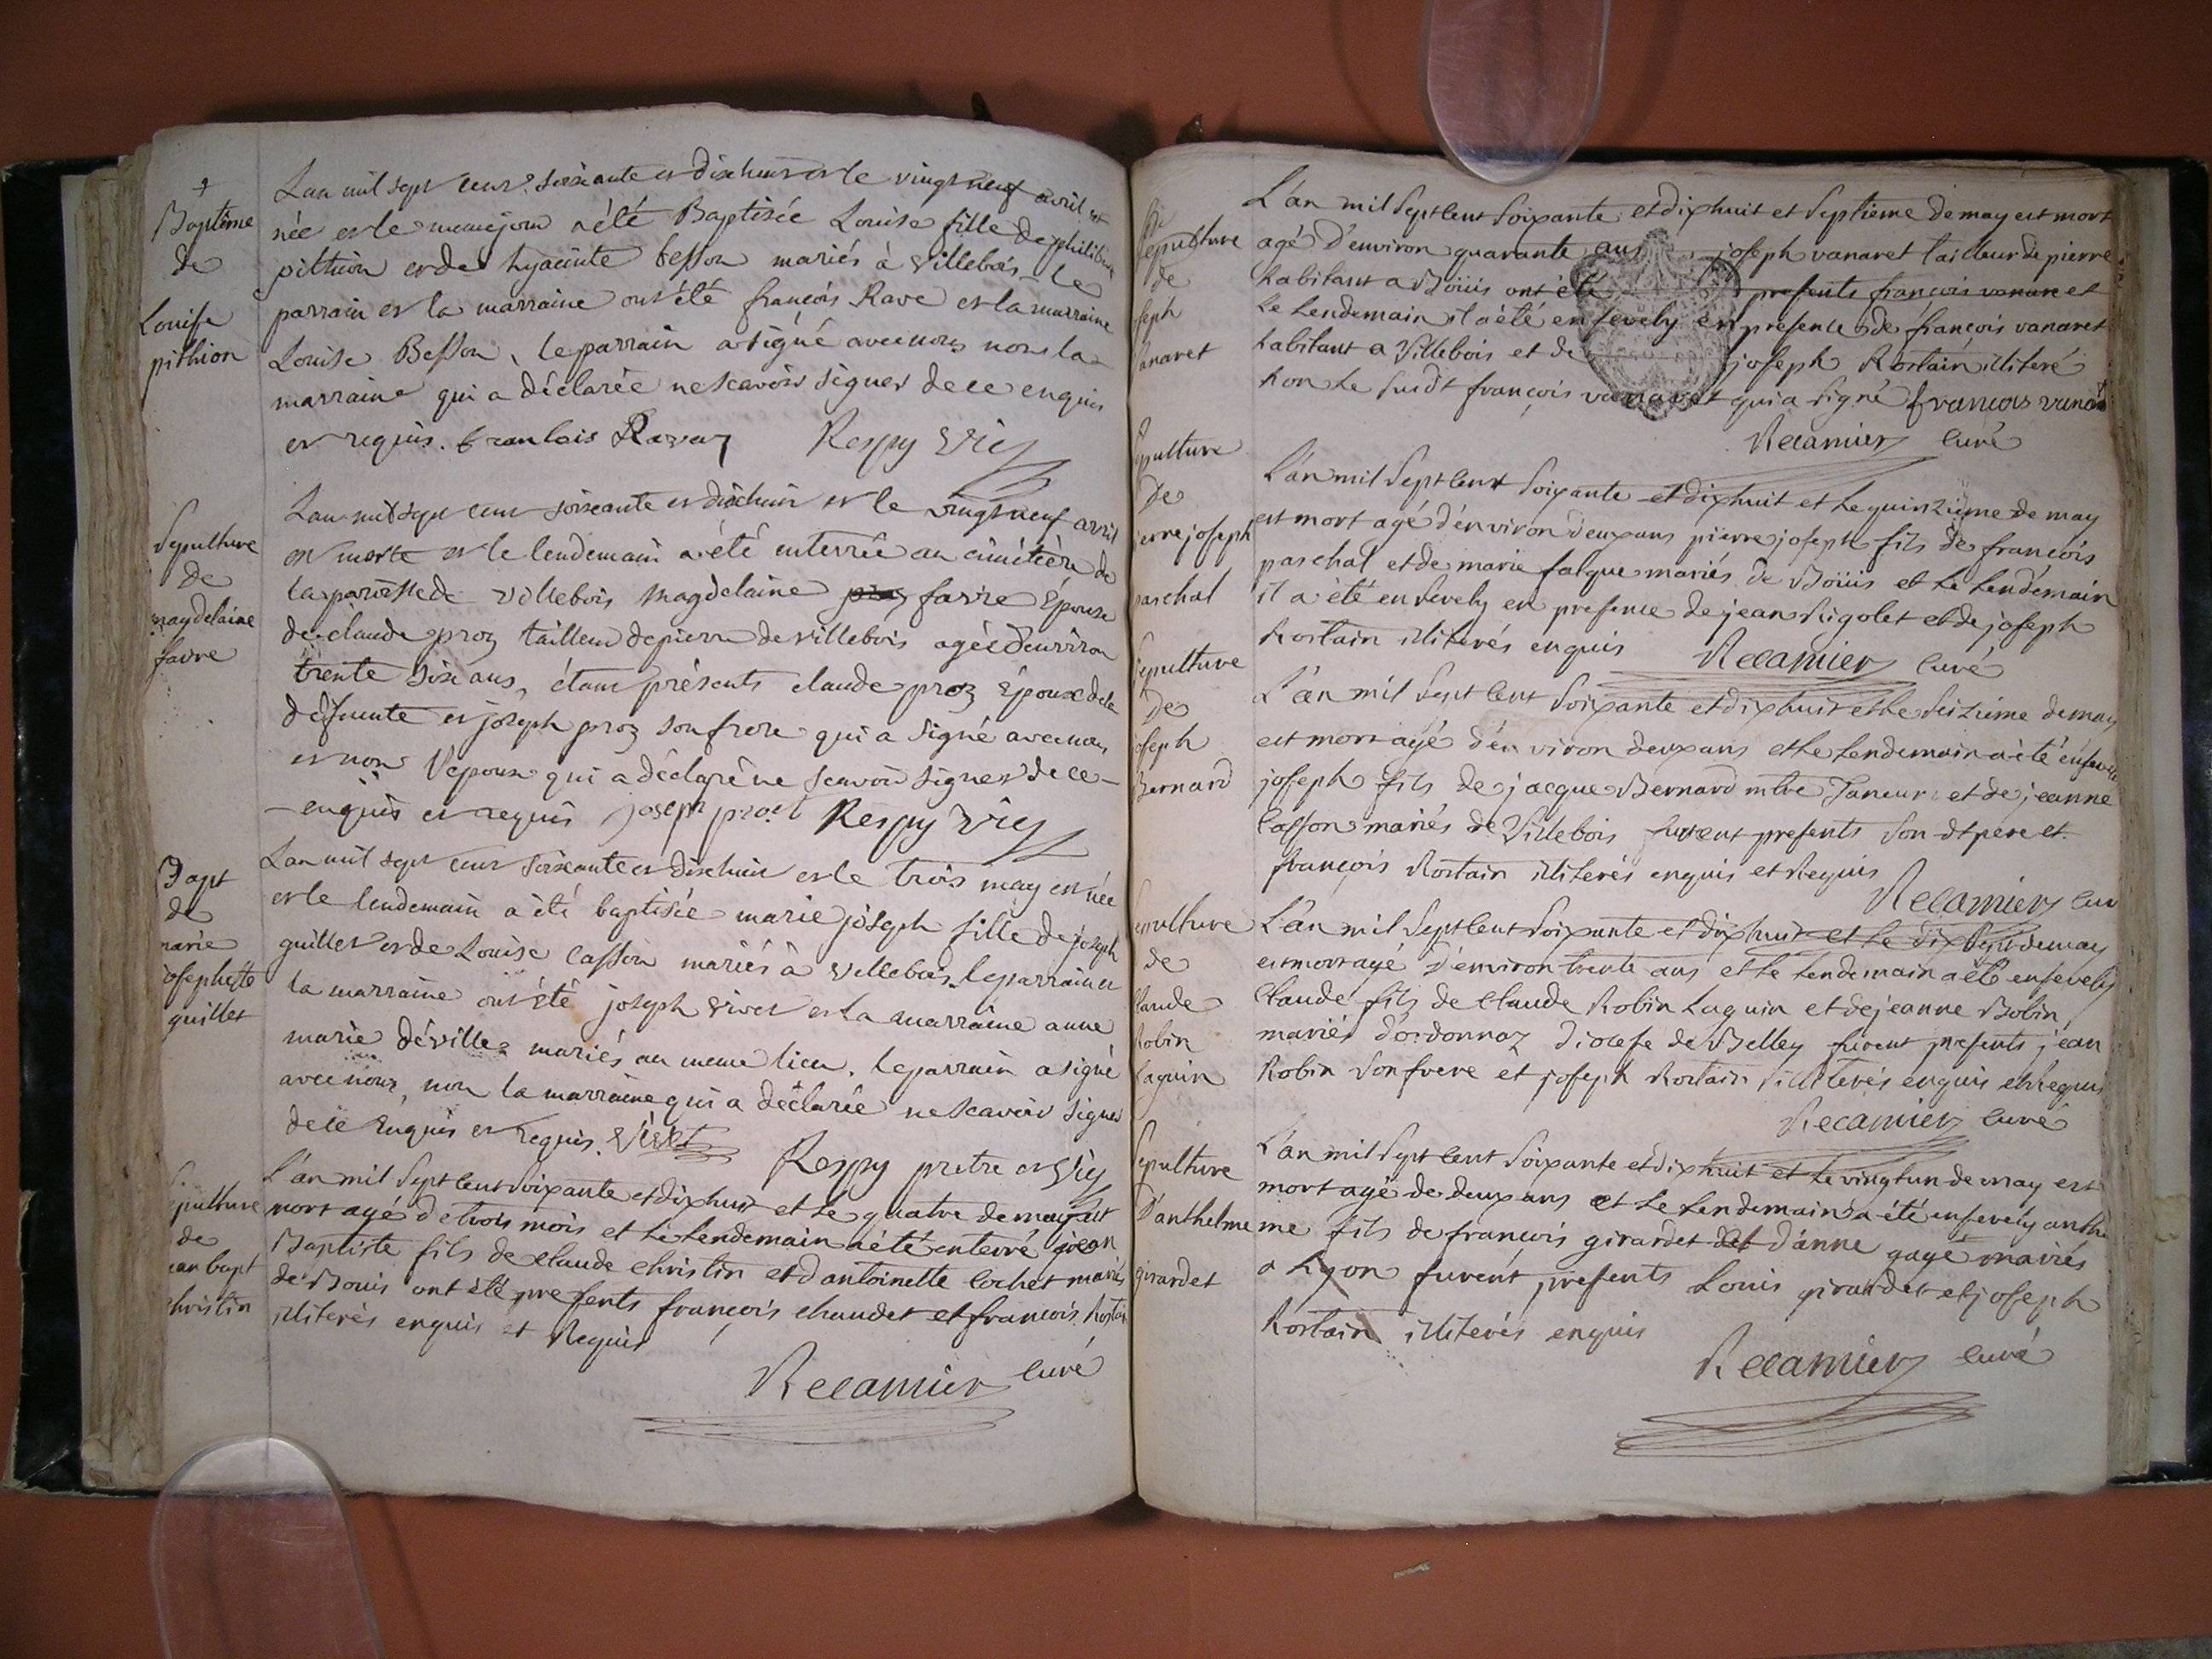 Baptême
de
Louise
pithion
Lan mil sept cent soixante et dix huit et le vingt neuf avril est
née et le meme jour a été Baptisée Louise fille de philibert
pithion et de hyacinte besson mariés à villebois le
parrain et la marraine ont été françois Rave et la marraine
Louise Besson, le parrain a signé avec nous non la
marraine qui a déclarée ne scavoir signer de ce enquis
et requis. francois Ravaz Respy vic
Sepulture
de
magdelaine
favre
Lan mil sept cent soixante et dix huit et le vingt neuf avril
est morte et le lendemain a été enterrée au cimétière de
la paroisse de villebois magdelaine favre épouse
de claude proz tailleur de pierre de villebois agée d'environ
trente six ans, étant présents claude proz époux de la
défunte et joseph proz son frere qui a signé avec nous
et non l'epoux qui a déclaré ne scavoir signer de ce
enquis et requis joseph prost Respy vic
Bapt
de
marie
josephste
guillet
Lan mil sept cent soixante et dix huit et le trois may est née
et le lendemain a été baptisée marie joseph fille de joseph
guillet et de Louise Casson mariés à villebois le parrain et
la marraine ont été joseph vivet et la marraine anne
marie déville mariés au meme lieu. le parrain a signé
avec nous, non la marraine qui a déclarée ne scavoir signer
de ce enquis et requis. vivet Respy pretre et vic
sepulture
de
jean bapt
christin
L'an mil sept cent soixante et dix huit et le quatre de may est
mort agé de trois mois et le lendemain a été enterré jean
Baptiste fils de claude christin et d'antoinette Cochet mariés
de Bouis ont été presents françois chaudet et françois Rostain
illiterés enquis et Requis
Recamier curé
sepulture
de
joseph
vanaret
L'an mil sept cent soixante et dix huit et septième de may est mort
agé d'environ quarante ans joseph vanaret tailleur de pierre
habitant a Boüis ont été presents françois vanaret
le lendemain il a été ensevely en presence de françois vanaret
habitant a villebois et de joseph Rostain illiteré
non le susdt françois vanaret qui a signé francois vanaret
Recamier curé
sepulture
de
pierre joseph
paschal
L'an mil sept cent soixante et dix huit et le quinzième de may
est mort agé d'environ deux ans pierre joseph fils de françois
paschal et de marie falque mariés de Boüis et le lendemain
il a été ensevely en presence de jean Rigolet et de joseph
Rostain illiterés enquis Recamier curé
sepulture
de
joseph
Bernard
L'an mil sept cent soixante et dix huit et le seizième de may
est mort agé d'environ deux ans et le lendemain a été ensevely
joseph fils de jacque Bernard mtre Taneur et de jeanne
Casson mariés de villebois furent presents son dt pere et
françois Rostain illiterés enquis et Requis
Recamier cur
sepulture
de
Claude
Robin
laguin
L'an mil sept cent soixante et dix huit et le dix sept de may
est mort agé d'environ trente ans et le lendemain a été ensevely
Claude fils de Claude Robin Laguin et de jeanne Bobin
mariés d'ordonnaz diocese de Belley furent presents jean
Robin son frere et joseph Rostain illiterés enquis et Requis
Recamier curé
sepulture
d'anthelme
girardet
L'an mil sept cent soixante et dix huit et le vingt un de may est
mort agé de deux ans et le lendemain a été ensevely anthel
me fils de françois girardet d'anne gagé mariés
a Lyon furent presents Louis girardet et joseph
Rostain illiterés enquis
Recamier curé